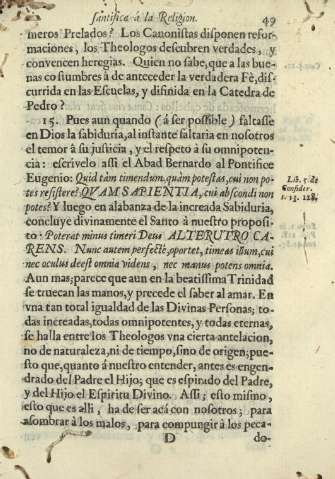 santifica á la Religion. 49
meros Prelados? Los Canonistas disponen refor-
maciones, los Theologos descubren verdades, y
convencen heregias. Quien no sabe, que a las bue-
nas costumbres à de anteceder la verdadera Fè, dis-
currida en las Escuelas, y difinida en la Catedra de
Pedro?
15. Pues aun quando (á ser possible) faltasse
en Dios la sabiduria, al instante faltaria en nosotros
el temor à su justicia, y el respeto à su omnipoten-
cia: escrivelo assi el Abad Bernardo al Pontifice
Eugenio: Quid tàm timendum, quàm potestas, cui non po-
tes resistere? QVAM SAPIENTIA, cui abscondi non
potes? Y luego en alabanza de la increada Sabiduria,
concluye divinamente el Santo à nuestro proposi-
to: Poterat minus timeri Deus ALTERUTRO CA-
RENS. Nunc autem perfectè, oportet, timeas illum, cui
nec oculus deest omnia videns, nec manus potens omnia.
Aun mas; parece que aun en la beatissima Trinidad
se truecan las manos, y precede el saber al amar. En
vna tan total igualdad de las Divinas Personas; to-
das increadas, todas omnipotentes, y todas eternas,
se halla entre los Theologos vna cierta antelacion,
no de naturaleza, ni de tiempo, sino de origen; pue-
sto que, quanto á nuestro entender, antes es engen-
drado del Padre el Hijo; que es espirado del Padre,
y del Hijo el Espiritu Divino. Assi; esto mismo,
esto que es alli, ha de ser acá con nosotros; para
asombrar à los malos, para compungir à los peca-
D do-
Lib. 5. de
Consider.